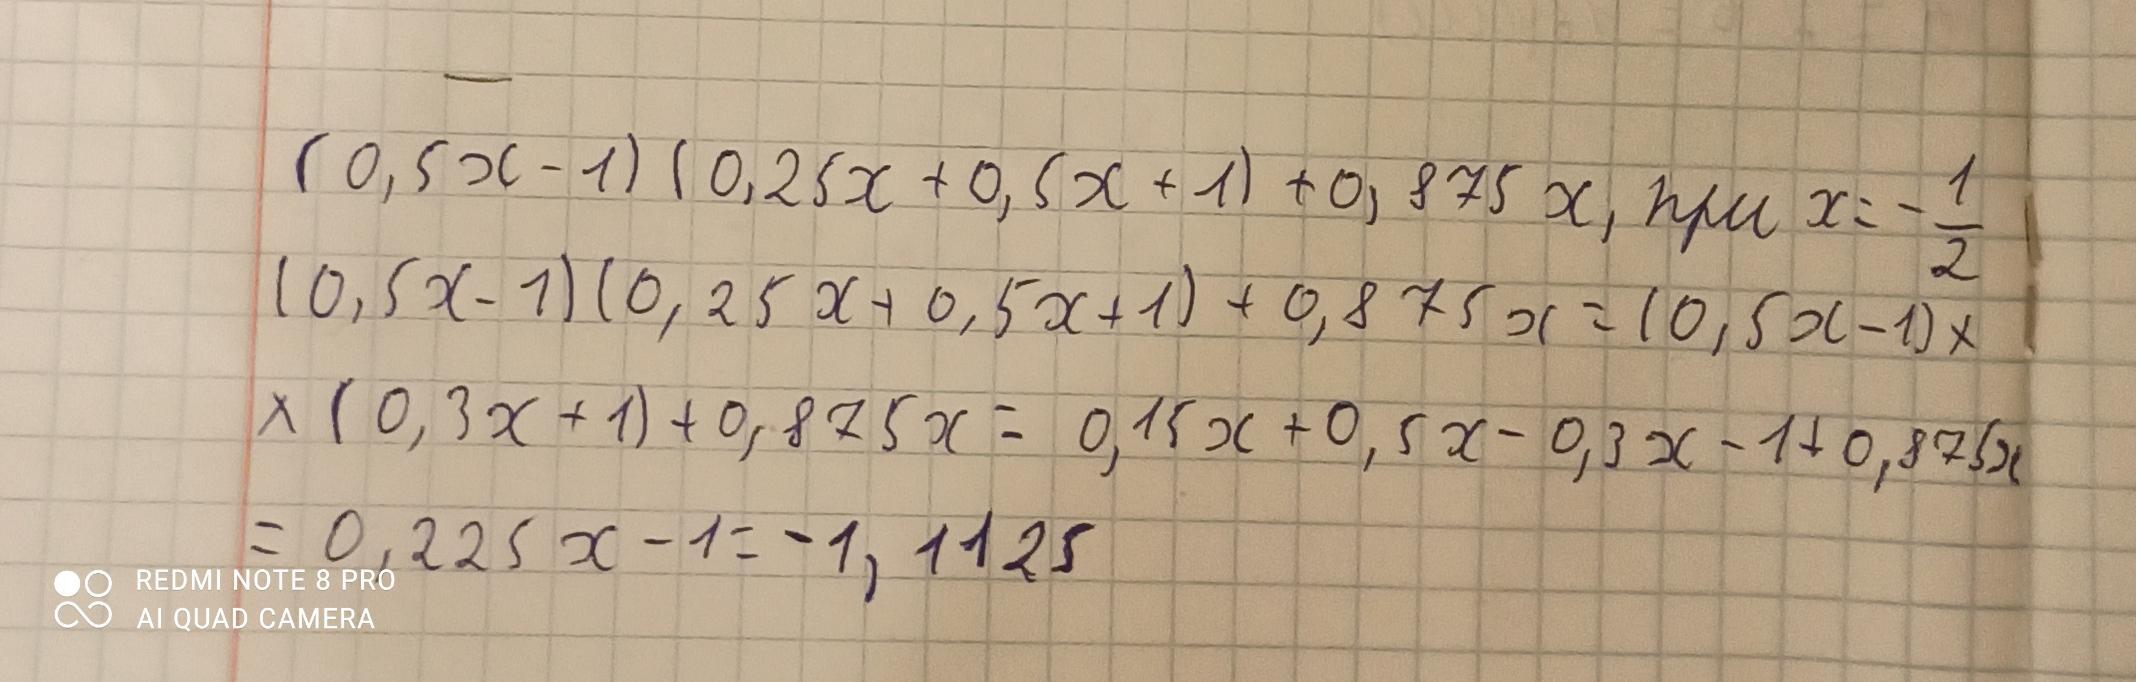 (0,5x-1)(0,25x+0,5x+1)+0,875x, при x=-1/2
(0,5x-1)(0,25x+0,5x+1)+0,875x=(0,5x-1)×
×(0,3x+1)+0,875x=0,15x+0,5x-0,3x-1+0,875x
=0,225x-1=-1,1125
REDMI NOTE 8 PRO
AI QUAD CAMERA